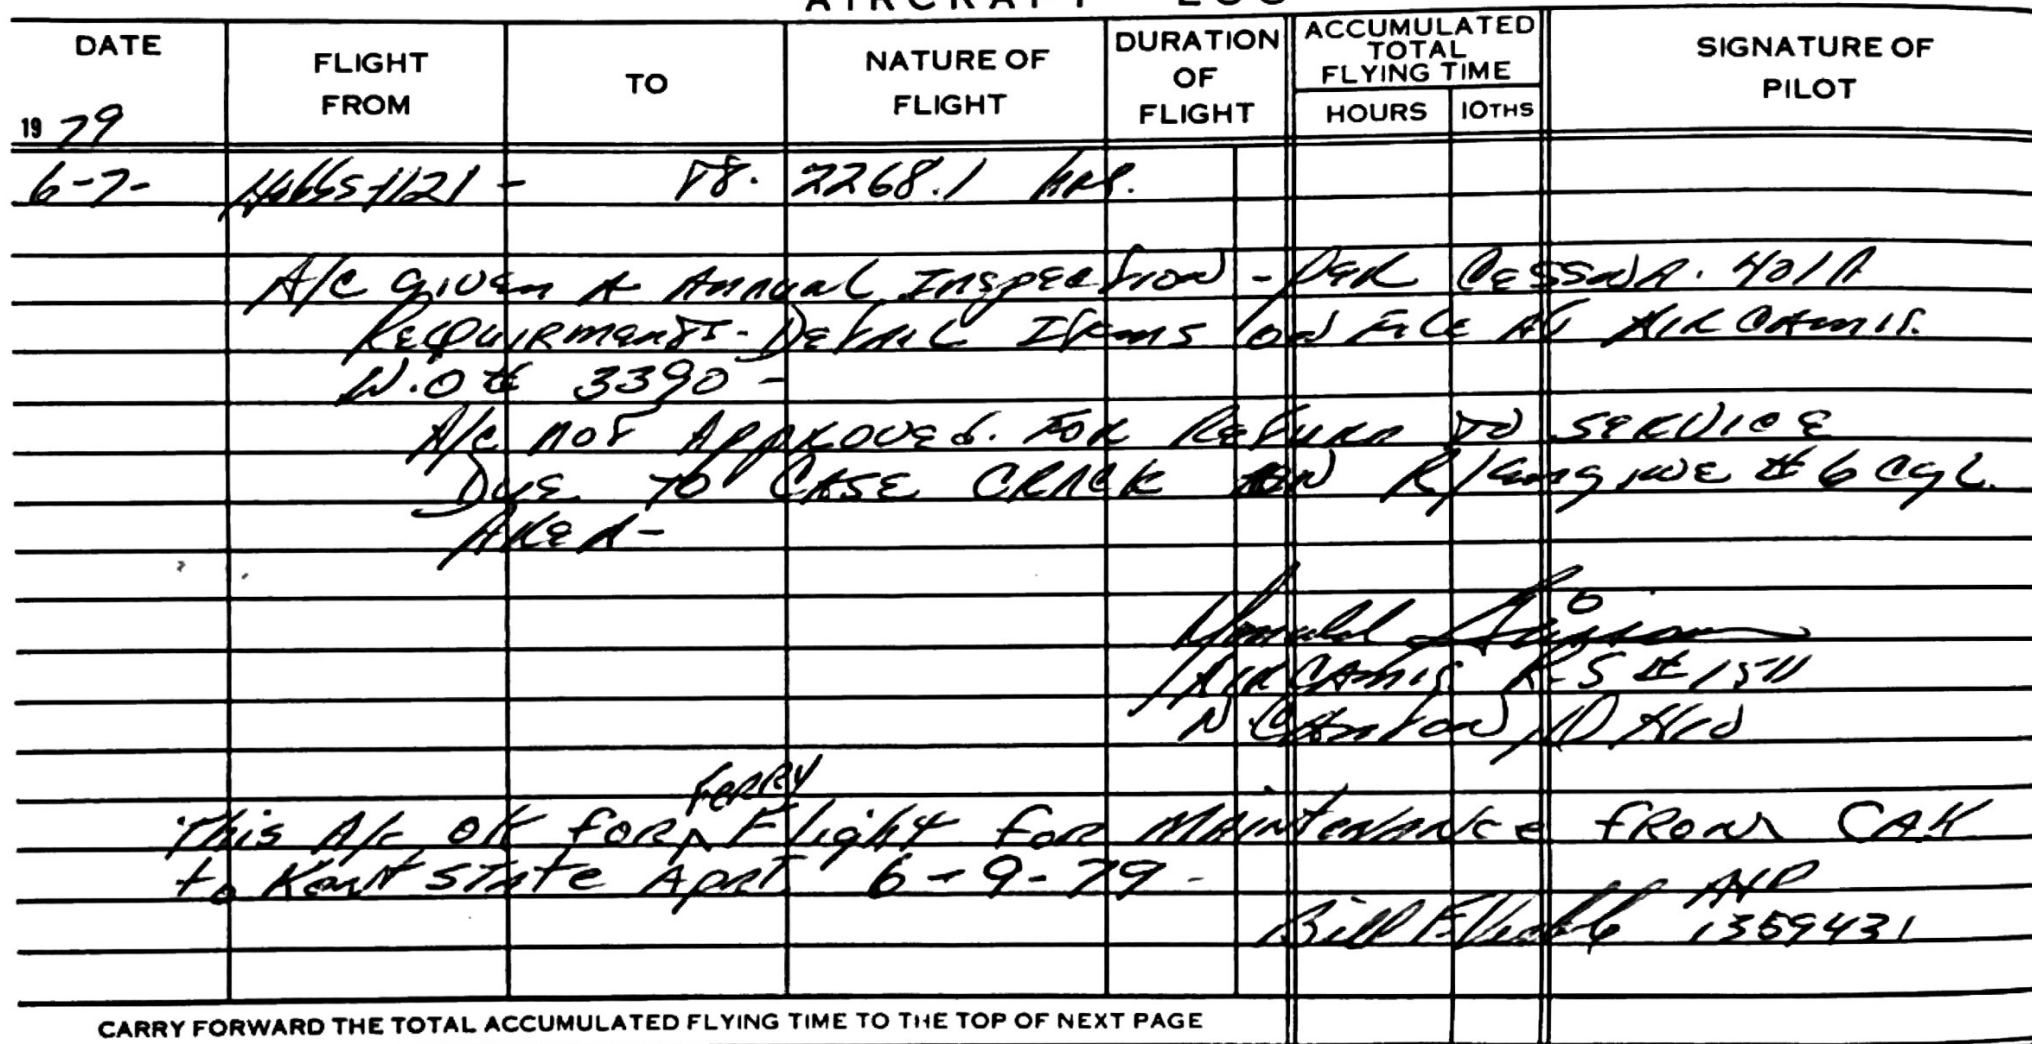 AIRCRAFT LOG
DATE
FLIGHT FROM
TO
NATURE OF FLIGHT
DURATION OF FLIGHT
ACCUMULATED TOTAL FLYING TIME
HOURS
10THS
SIGNATURE OF PILOT
19 79
6-7- Hobbs-1121 - TT. 2268.1 hrs.
A/C given A Annual Inspection - Per Cessna. 401A
Requirments - Detail Items on File At Air Camis.
W.O # 3390 -
A/C not Approved. For Return To Service
Due To Case Crack on R/Engine #6 Cyl.
Area -
Donald
Air Camis R.S # 1511
N Canton, Ohio
This A/C OK for Ferry Flight for Maintenance from CAK
to Kent State Aprt 6-9-79 -
Bill A&P
1359431
CARRY FORWARD THE TOTAL ACCUMULATED FLYING TIME TO THE TOP OF NEXT PAGE